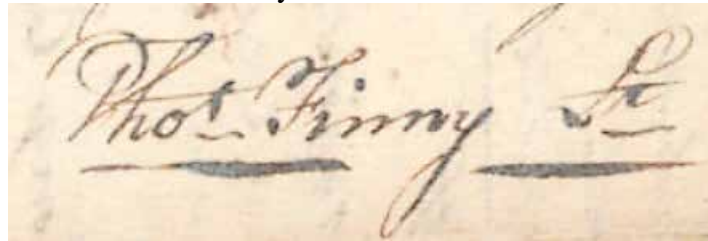 Thos. Finny Sr